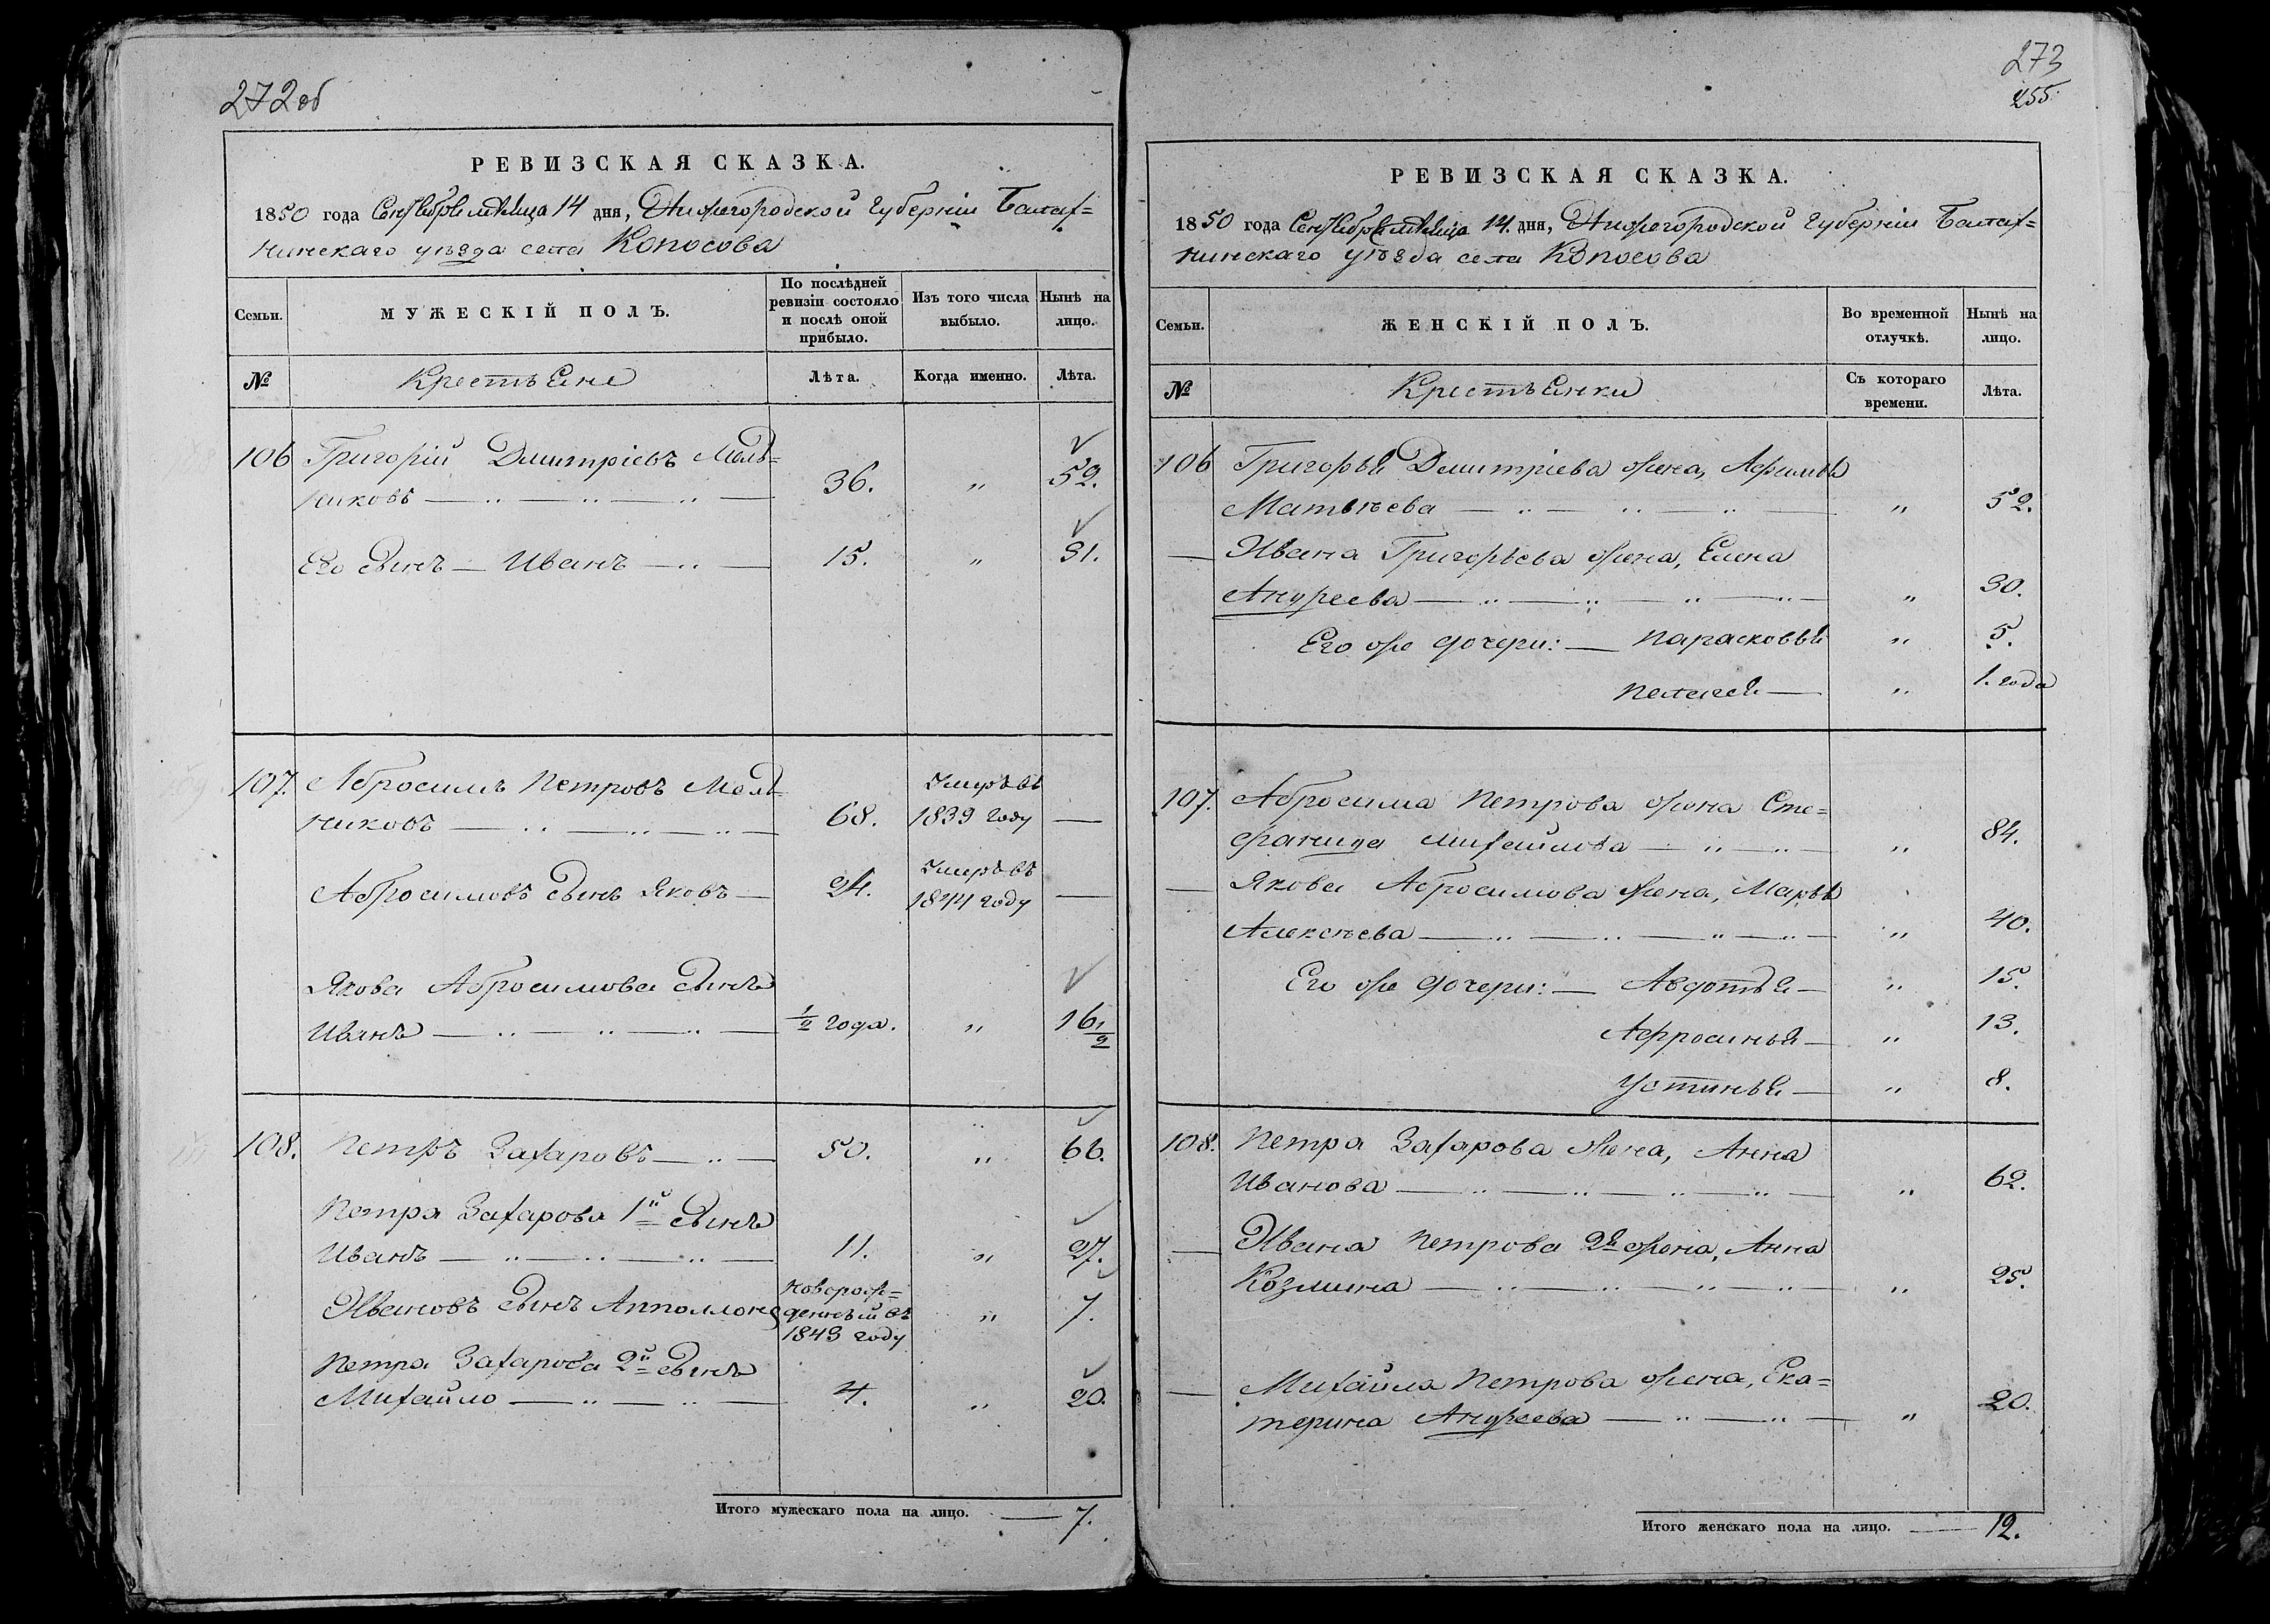 272об
РЕВИЗСКАЯ СКАЗКА.
1850 года Сентября месяца 14 дня, Нижегородской Губерніи Балах=
нинскаго уѣзда села Копосова
Семьи.
МУЖЕСКІЙ ПОЛЪ.
По послѣдней
ревизіи состояло
и послѣ оной
прибыло.
Изъ того числа
выбыло.
Нынѣ на
лицо.
№
Крестьяне
Лѣта.
Когда именно.
Лѣта.
106 Григорій Дмитріевъ Мель=
никовъ — „ — „ — „ — 36. „ 52.
Его сынъ — Иванъ — „ — 15. „ 31.
107. Абросимъ Петровъ Мель=
никовъ — „ — „ — „ — 68. Умръ въ 1839 году —
Абросимовъ сынъ Яковъ — 24. Умръ въ 1844 году —
Якова Абросимова сынъ
Иванъ — „ — „ — „ — 1/2 года. „ 16 1/2
108. Петръ Захаровъ — „ — 50. „ 66.
Петра Захарова 1й сынъ
Иванъ — „ — „ — „ — 11. „ 27.
Ивановъ сынъ Апполлонъ новорож=
денный въ
1843 году „ 7.
Петра Захарова 2й сынъ
Михайло — „ — „ — 4. „ 20.
Итого мужескаго пола на лицо. — 7.
273
255.
РЕВИЗСКАЯ СКАЗКА.
1850 года Сентября месяца 14 дня, Нижегородской Губерніи Балах=
нинскаго уѣзда села Копосова
Семьи.
ЖЕНСКІЙ ПОЛЪ.
Во временной
отлучкѣ.
Нынѣ на
лицо.
№
Крестьянки
Съ котораго
времени.
Лѣта.
106 Григорья Дмитріева жена, Афимья
Матвѣева — „ — „ — „ — „ 52.
— Ивана Григорьева жена, Елена
Андреева — „ — „ — „ — „ — „ 30.
Его же дочери: — Парасковья „ 5.
Пелагея — „ 1. года
107. Абросима Петрова жена Сте=
фанида Михайлова — „ — „ — „ 84.
— Якова Абросимова жена, Марья
Алексѣева — „ — „ — „ — „ — „ 40.
Его же дочери: — Авдотья — „ 15.
Афросинья — „ 13.
Устинья — „ 8.
108. Петра Захарова жена, Анна
Иванова — „ — „ — „ — „ — „ 62.
— Ивана Петрова 2я жена, Анна
Козмина — „ — „ — „ — „ — „ 25.
— Михайла Петрова жена, Ека=
терина Андреева — „ — „ — „ 20.
Итого женскаго пола на лицо. — 12.